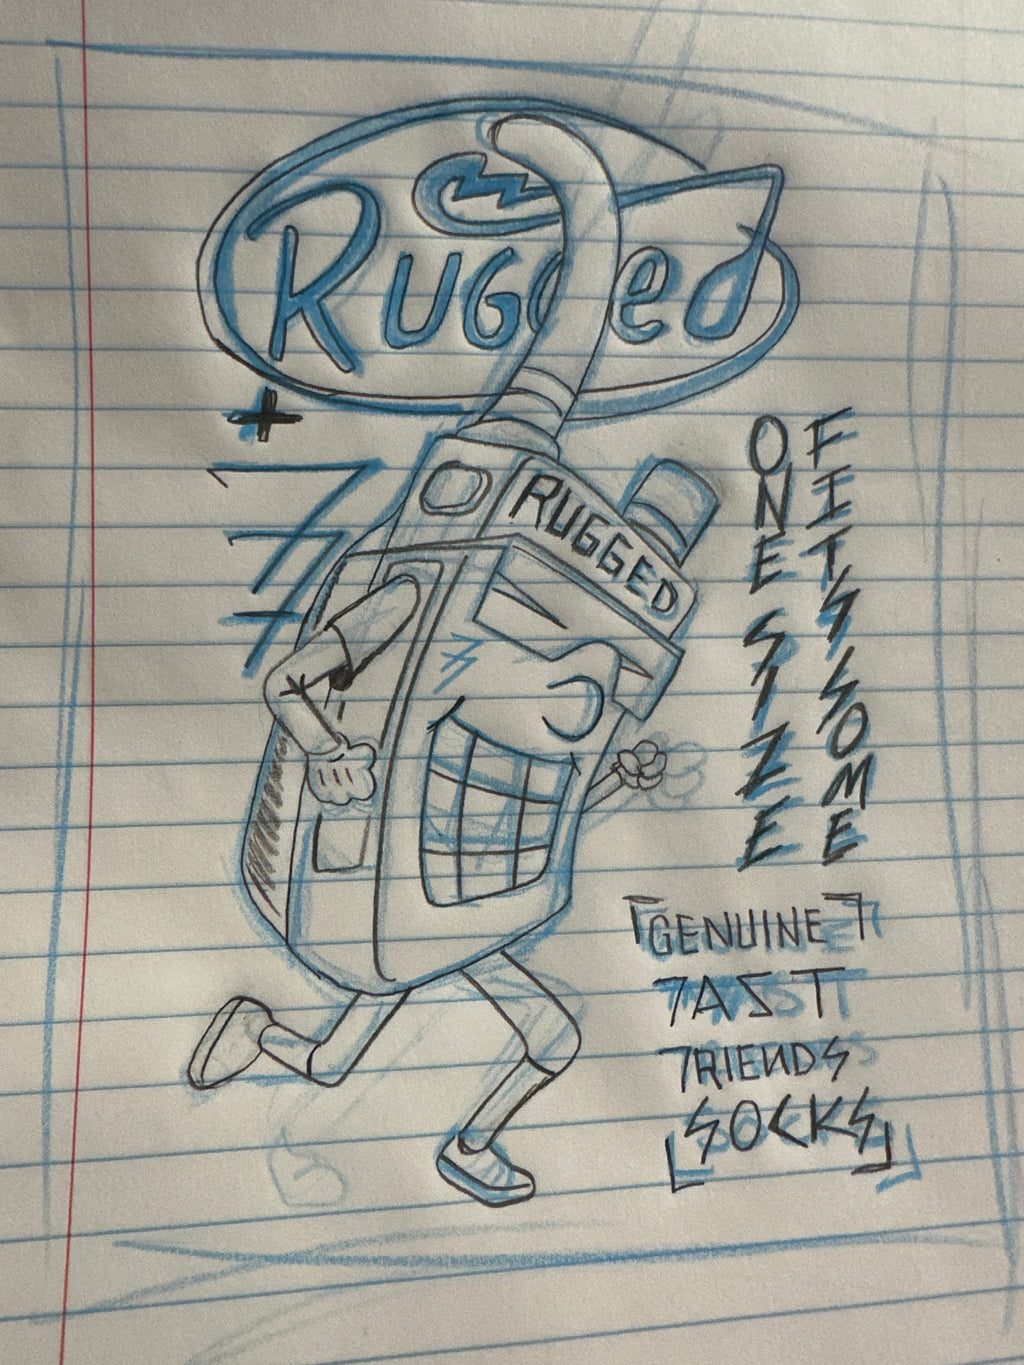 Rugged
RUGGED
ONE SIZE
FITS SOME
GENUINE
FAST
FRIENDS
SOCKS